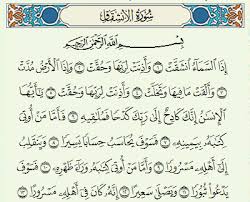 سُورَةُ الانشِقَاقِ
بِسْمِ ٱللَّهِ ٱلرَّحْمَٰنِ ٱلرَّحِيمِ
إِذَا ٱلسَّمَآءُ ٱنشَقَّتْ ١ وَأَذِنَتْ لِرَبِّهَا وَحُقَّتْ ٢ وَإِذَا ٱلْأَرْضُ مُدَّتْ
٣ وَأَلْقَتْ مَا فِيهَا وَتَخَلَّتْ ٤ وَأَذِنَتْ لِرَبِّهَا وَحُقَّتْ ٥ يَٰٓأَيُّهَا
ٱلْإِنسَٰنُ إِنَّكَ كَادِحٌ إِلَىٰ رَبِّكَ كَدْحًا فَمُلَٰقِيهِ ٦ فَأَمَّا مَنْ أُوتِىَ
كِتَٰبَهُۥ بِيَمِينِهِۦ ٧ فَسَوْفَ يُحَاسَبُ حِسَابًا يَسِيرًا ٨ وَيَنقَلِبُ
إِلَىٰٓ أَهْلِهِۦ مَسْرُورًا ٩ وَأَمَّا مَنْ أُوتِىَ كِتَٰبَهُۥ وَرَآءَ ظَهْرِهِۦ ١٠ فَسَوْفَ
يَدْعُوا۟ ثُبُورًا ١١ وَيَصْلَىٰ سَعِيرًا ١٢ إِنَّهُۥ كَانَ فِىٓ أَهْلِهِۦ مَسْرُورًا ١٣